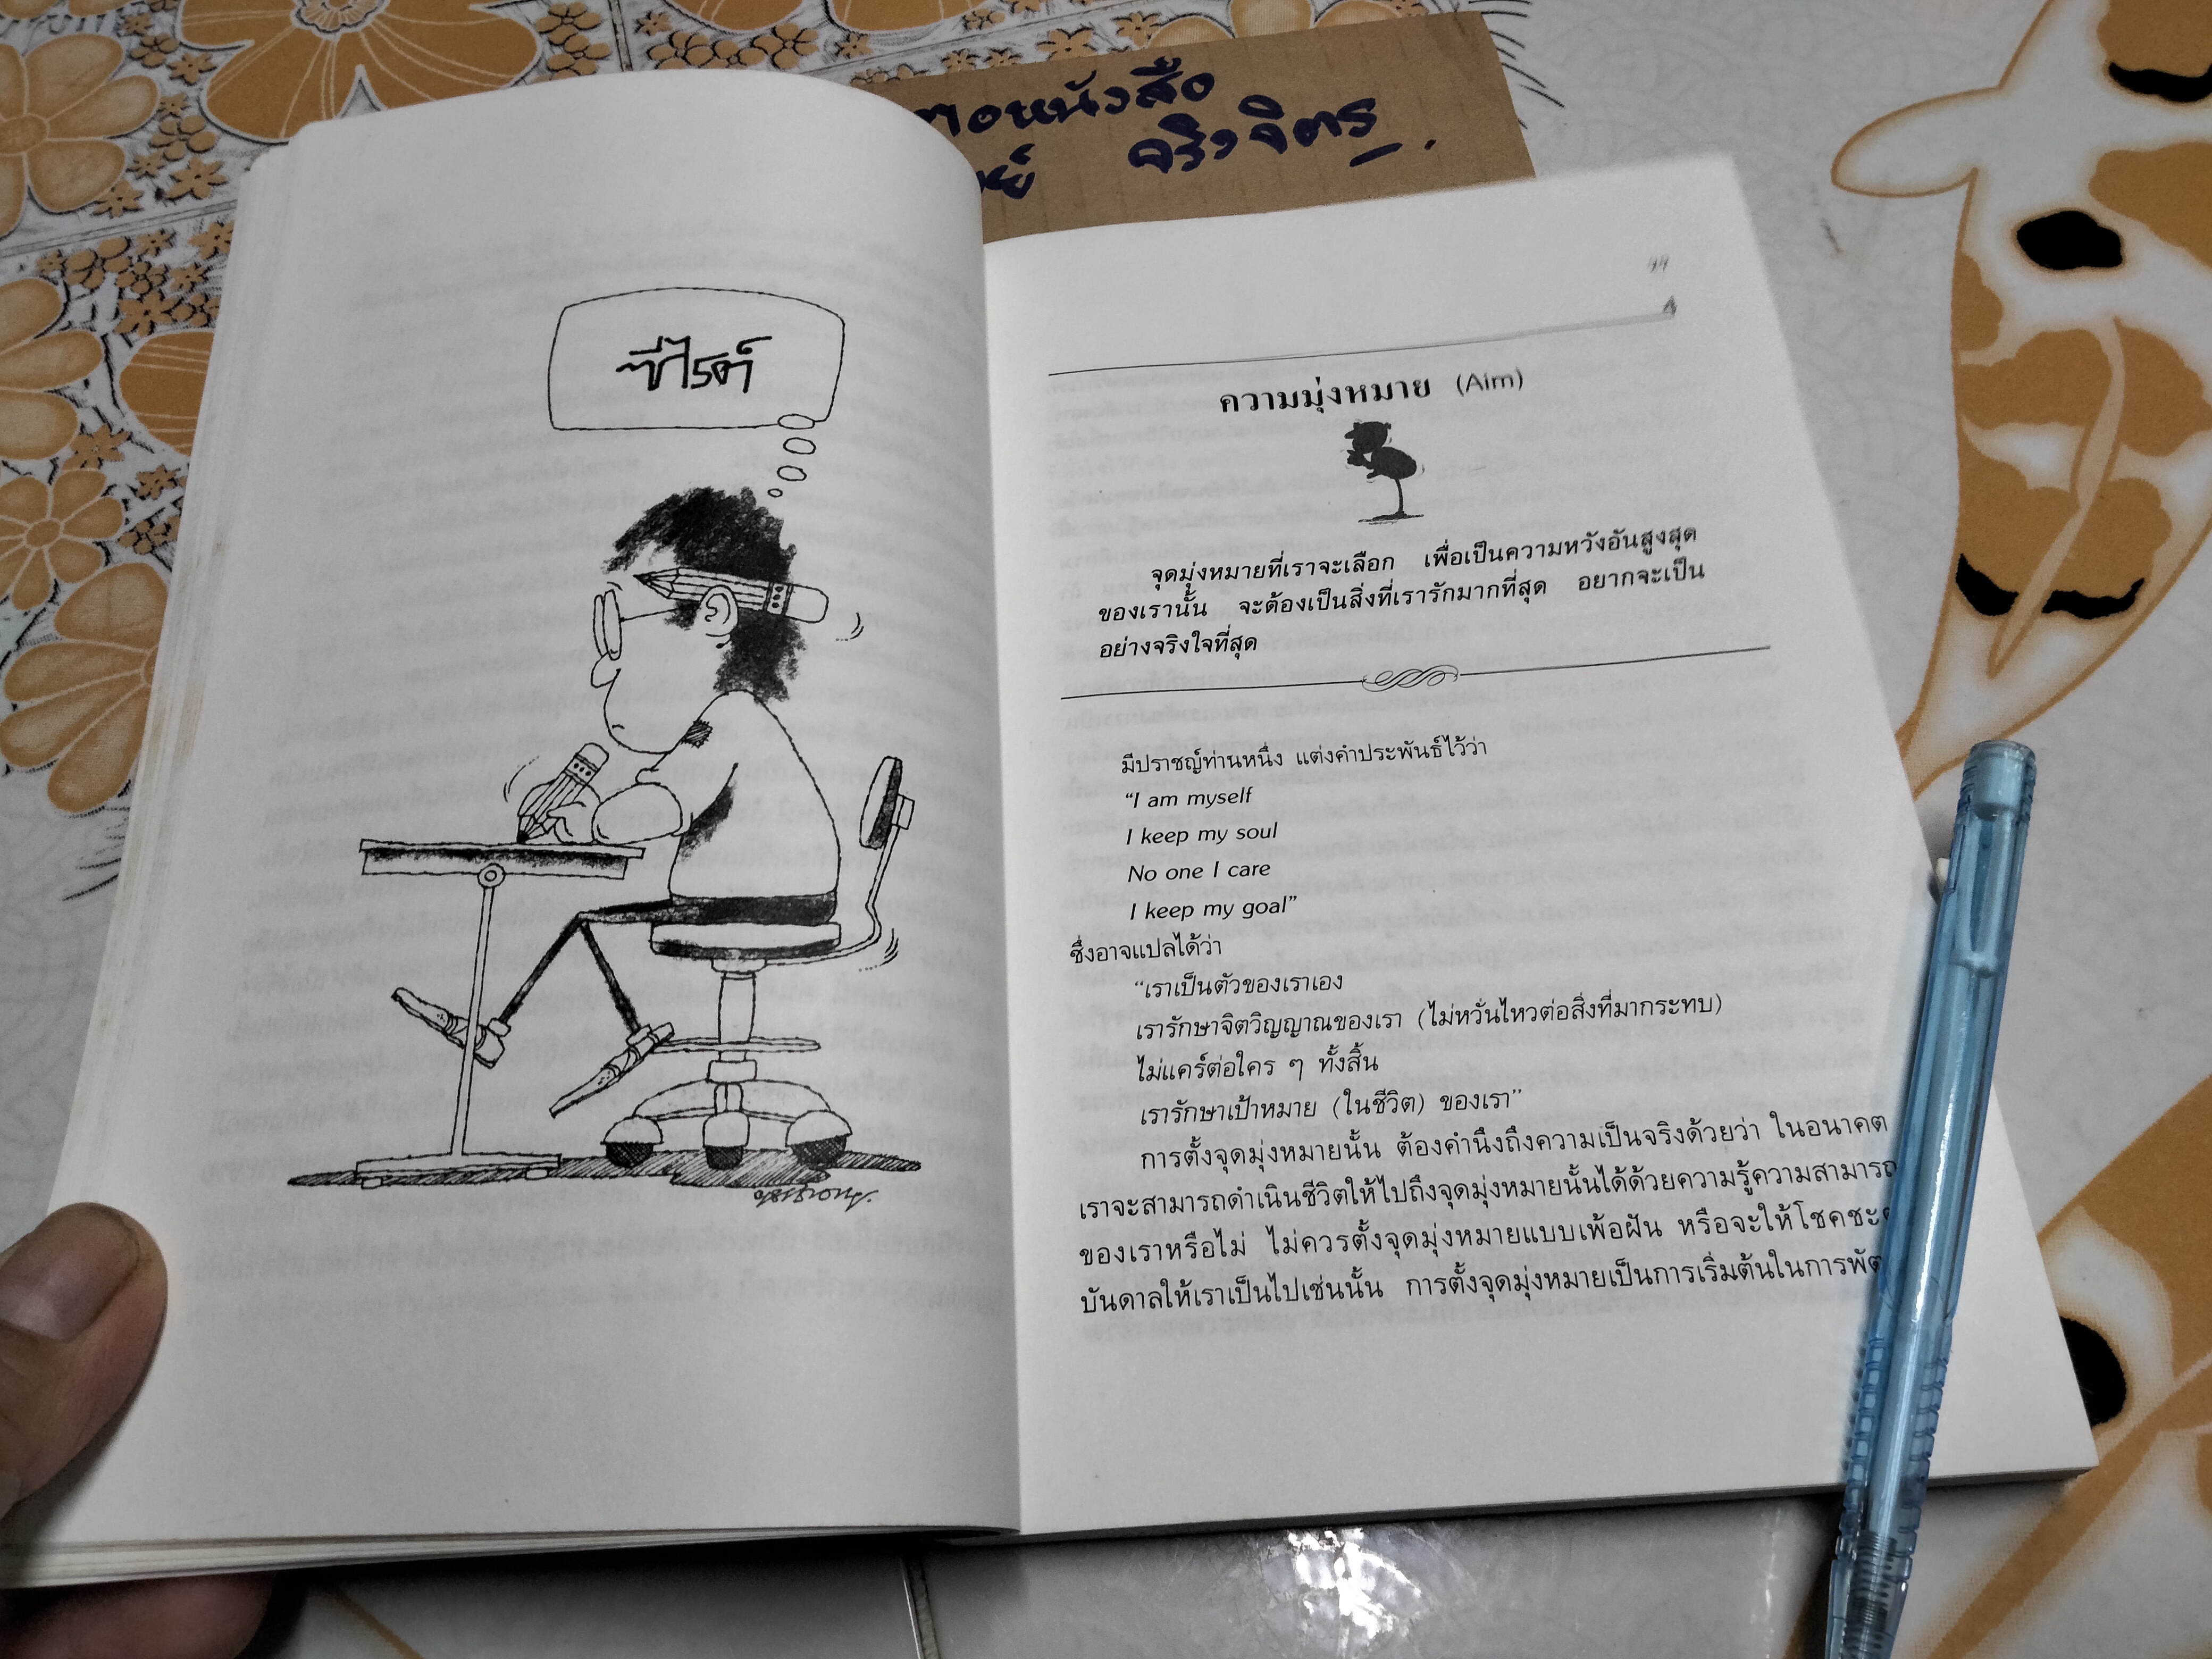 ต่อหนังสือ
จริงจิตร
ซีไรต์
๑๑
ความมุ่งหมาย (Aim)
จุดมุ่งหมายที่เราจะเลือก เพื่อเป็นความหวังอันสูงสุด
ของเรานั้น จะต้องเป็นสิ่งที่เรารักมากที่สุด อยากจะเป็น
อย่างจริงใจที่สุด
มีปราชญ์ท่านหนึ่ง แต่งคำประพันธ์ไว้ว่า
“I am myself
I keep my soul
No one I care
I keep my goal”
ซึ่งอาจแปลได้ว่า
“เราเป็นตัวของเราเอง
เรารักษาจิตวิญญาณของเรา (ไม่หวั่นไหวต่อสิ่งที่มากระทบ)
ไม่แคร์ต่อใคร ๆ ทั้งสิ้น
เรารักษาเป้าหมาย (ในชีวิต) ของเรา”
การตั้งจุดมุ่งหมายนั้น ต้องคำนึงถึงความเป็นจริงด้วยว่า ในอนาคต
เราจะสามารถดำเนินชีวิตให้ไปถึงจุดมุ่งหมายนั้นได้ด้วยความรู้ความสามารถ
ของเราหรือไม่ ไม่ควรตั้งจุดมุ่งหมายแบบเพ้อฝัน หรือจะให้โชคชะ
บันดาลให้เราเป็นไปเช่นนั้น การตั้งจุดมุ่งหมายเป็นการเริ่มต้นในการพัฒ